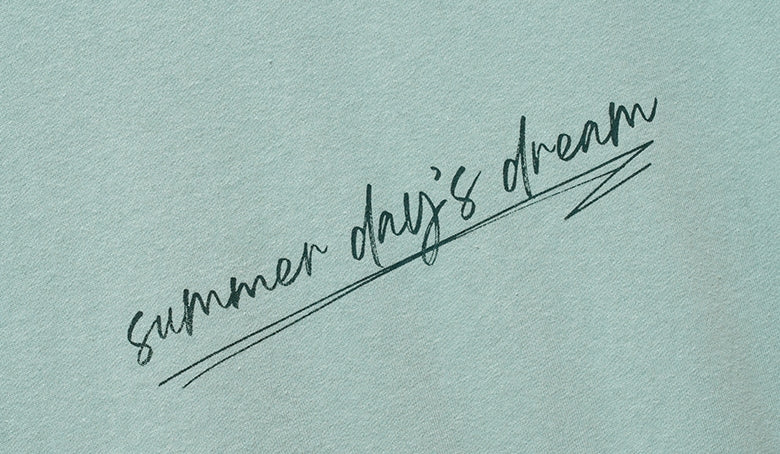 summer day's dream